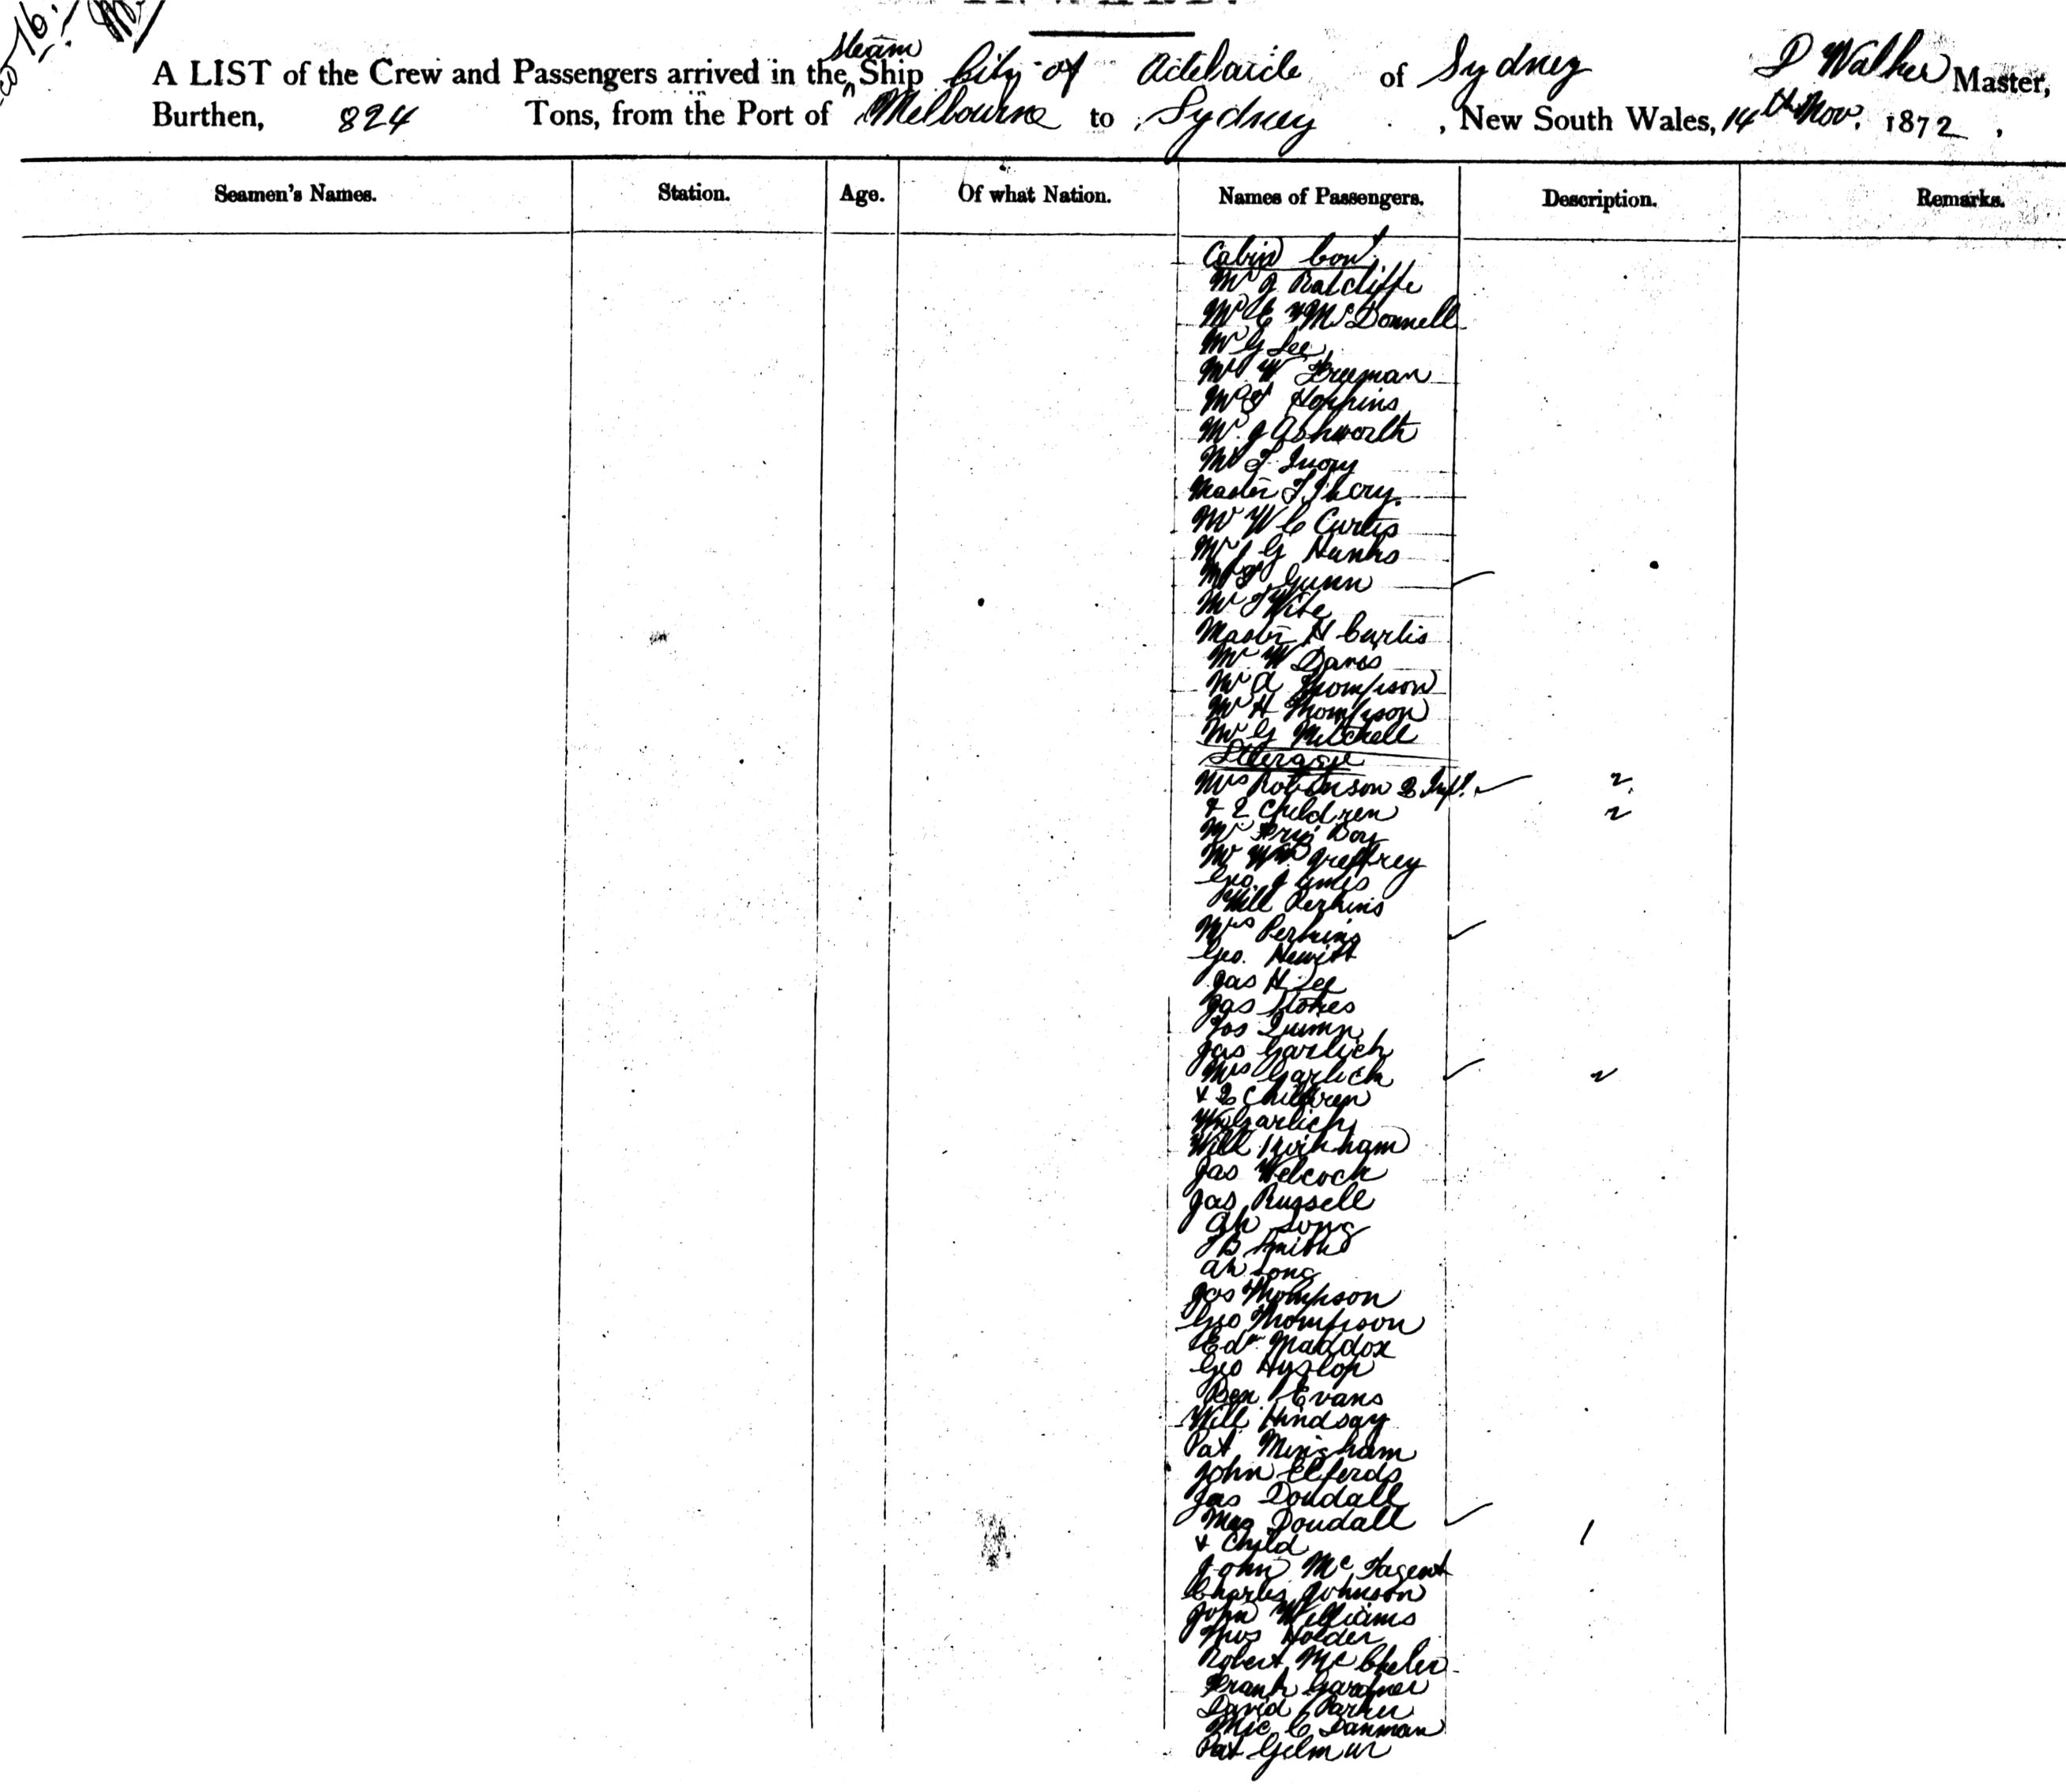 A LIST of the Crew and Passengers arrived in the Steam Ship City of Adelaide of Sydney D Walker Master,
Burthen, 824 Tons, from the Port of Melbourne to Sydney, New South Wales, 14th Nov. 1872,
Seamen's Names. Station. Age. Of what Nation. Names of Passengers. Description. Remarks.
Cabin
Mr Ratcliffe
McDonnell
Mr G Lee
Mr W Freeman
Hopkins
Mr J Ashworth
Mr Ivory
Master Ivory.
Mr W C Curtis
Mr J G Hanks
Gunn
Mr
Master H Curtis
Mr W Davis
Mr A Thompson
Mr H Thompson
Mr G Mitchell
Steerage
Mrs Robinson & Inft. 2
& 2 Children 2
Mr Boy
Mr Wm Greffrey
Geo. James
Will Perkins
Mrs Perkins
Geo. Hewitt
Jas H Lee
Jas Stokes
Jos
Jas Garlich
Mrs Garlich 2
& 2 Children
Wm Garlich
Will
Jas Welcock
Jas Russell
Ah Song
J B Smith
Ah Long
Jos Thompson
Geo Thompson
Edw Maddox
Geo Hyslop
Ben Evans
Will Hindsay
Pat Mingham
John Elferds
Jas Doudall
Mrs Doudall
& Child 1
John
Charles Johnson
John Williams
Thos Holder
Robert
Frank Gardner
David Parker
Mic C Danman
Pat Gilmur